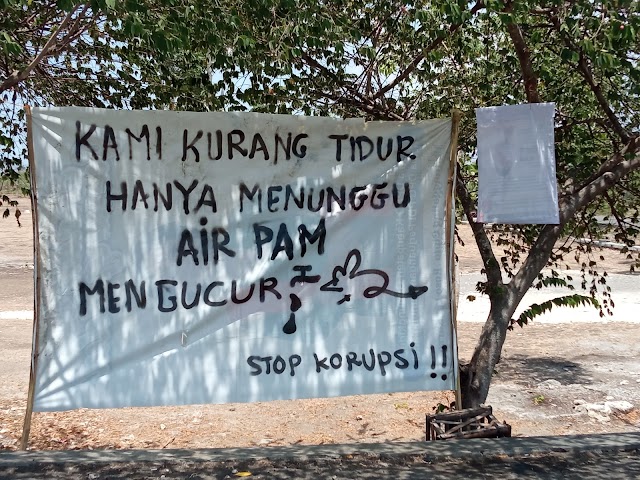 KAMI KURANG TIDUR
HANYA MENUNGGU
AIR PAM
MENGUCUR
STOP KORUPSI !!